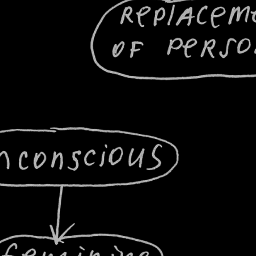 REPLACEME
OF PERSO
nconscious
feminine